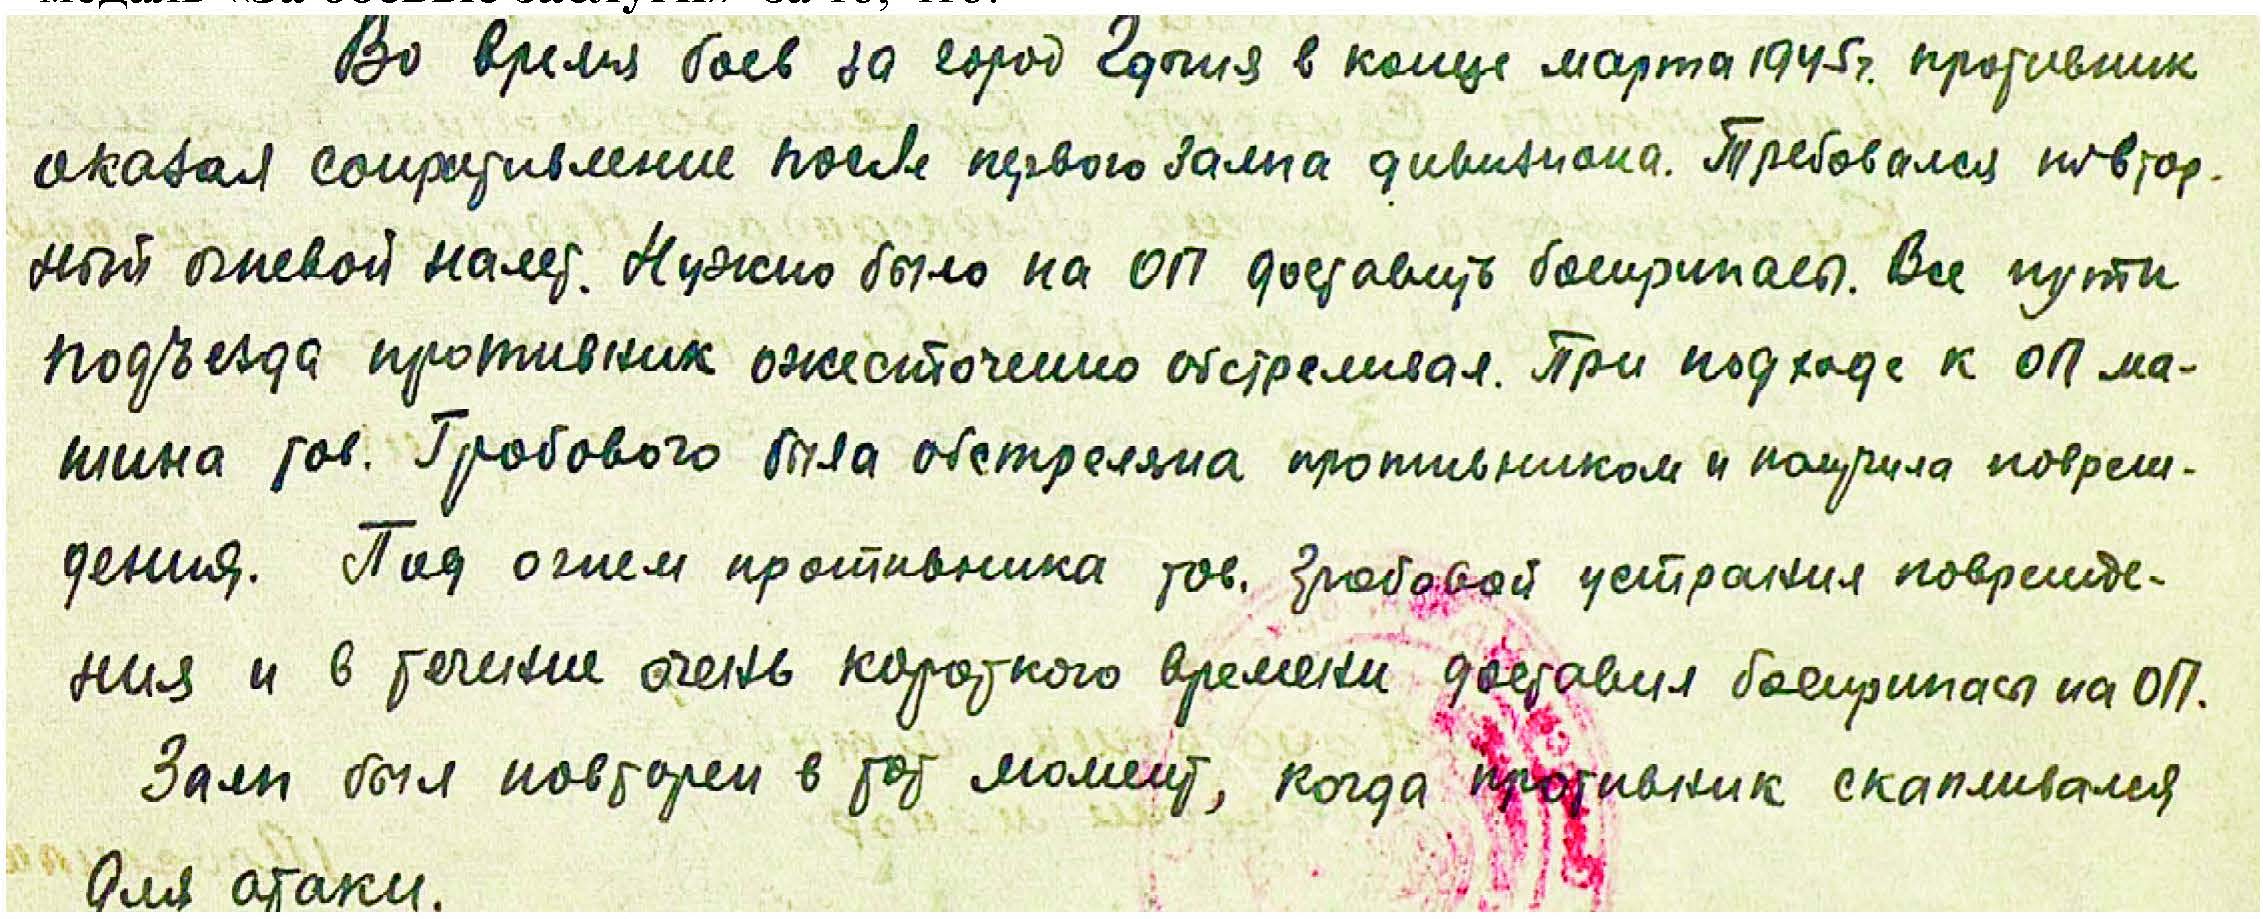 медаль «За боевые заслуги» за то, что:
Во время боев за город Гдыня в конце марта 1945г. противник
оказал сопротивление после первого залпа дивизиона. Требовался повтор-
ный огневой налет. Нужно было на ОП доставить боеприпасы. Все пути
подъезда противник ожесточенно обстреливал. При подходе к ОП ма-
шина тов. Гробового была обстреляна противником и получила повреж-
дения. Под огнем противника тов. Гробовой устранил поврежде-
ния и в течение очень короткого времени доставил боеприпасы на ОП.
Залп был повторен в тот момент, когда противник скапливался
для атаки.